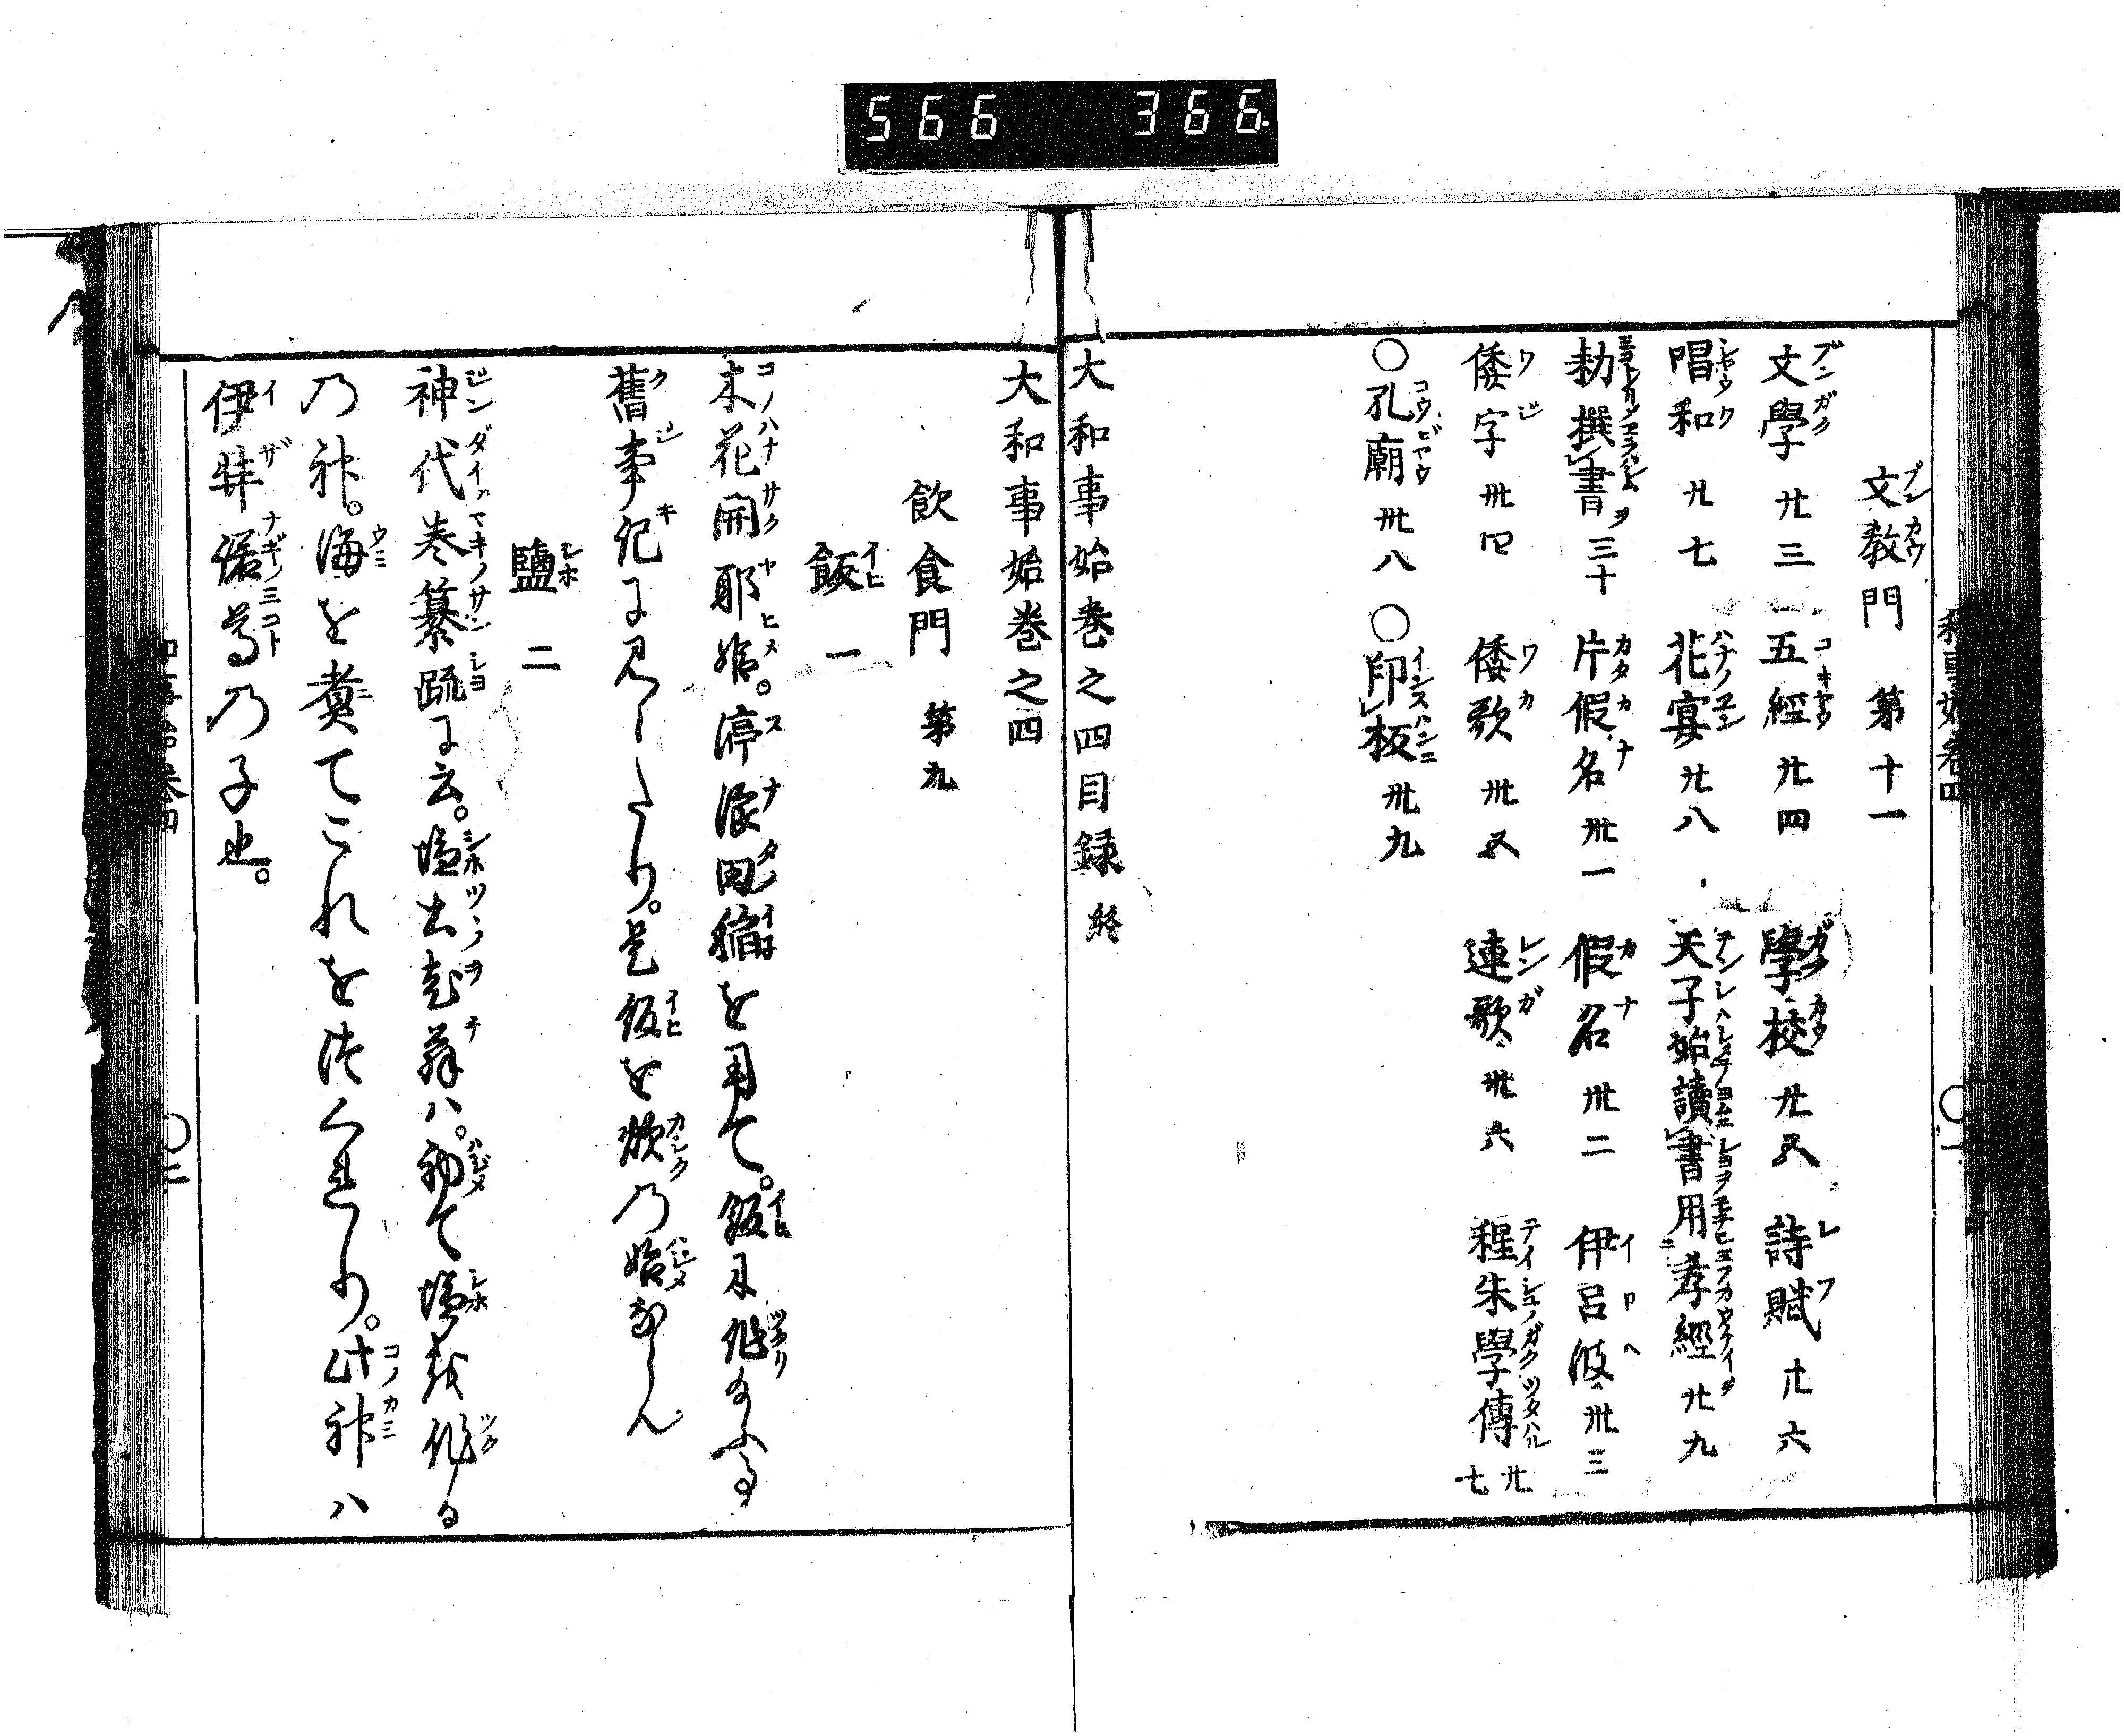 566 366.
文教門 第十一
文學 廿三 五經 廿四 學校 廿五 詩賦 廿六
唱和 廿七 花宴 廿八 天子始讀書用孝經 廿九
勅撰書 三十 片假名 卅一 假名 卅二 伊呂波 卅三
倭字 卅四 倭歌 卅五 連歌 卅六 程朱學傳 卅七
〇孔廟 卅八 〇印板 卅九
大和事始巻之四目録 終
大和事始巻之四
飲食門 第九
飯 一
木花開耶姫。渟浪田稲を用て。飯に作給ふ事
舊事紀に見えたり。是飯を炊の始ならん
鹽 二
神代巻纂疏に云。塩土老翁ハ。初て塩を作る
の神。海を煮てこれをつくれり。此神ハ
伊弉諾尊の子也。